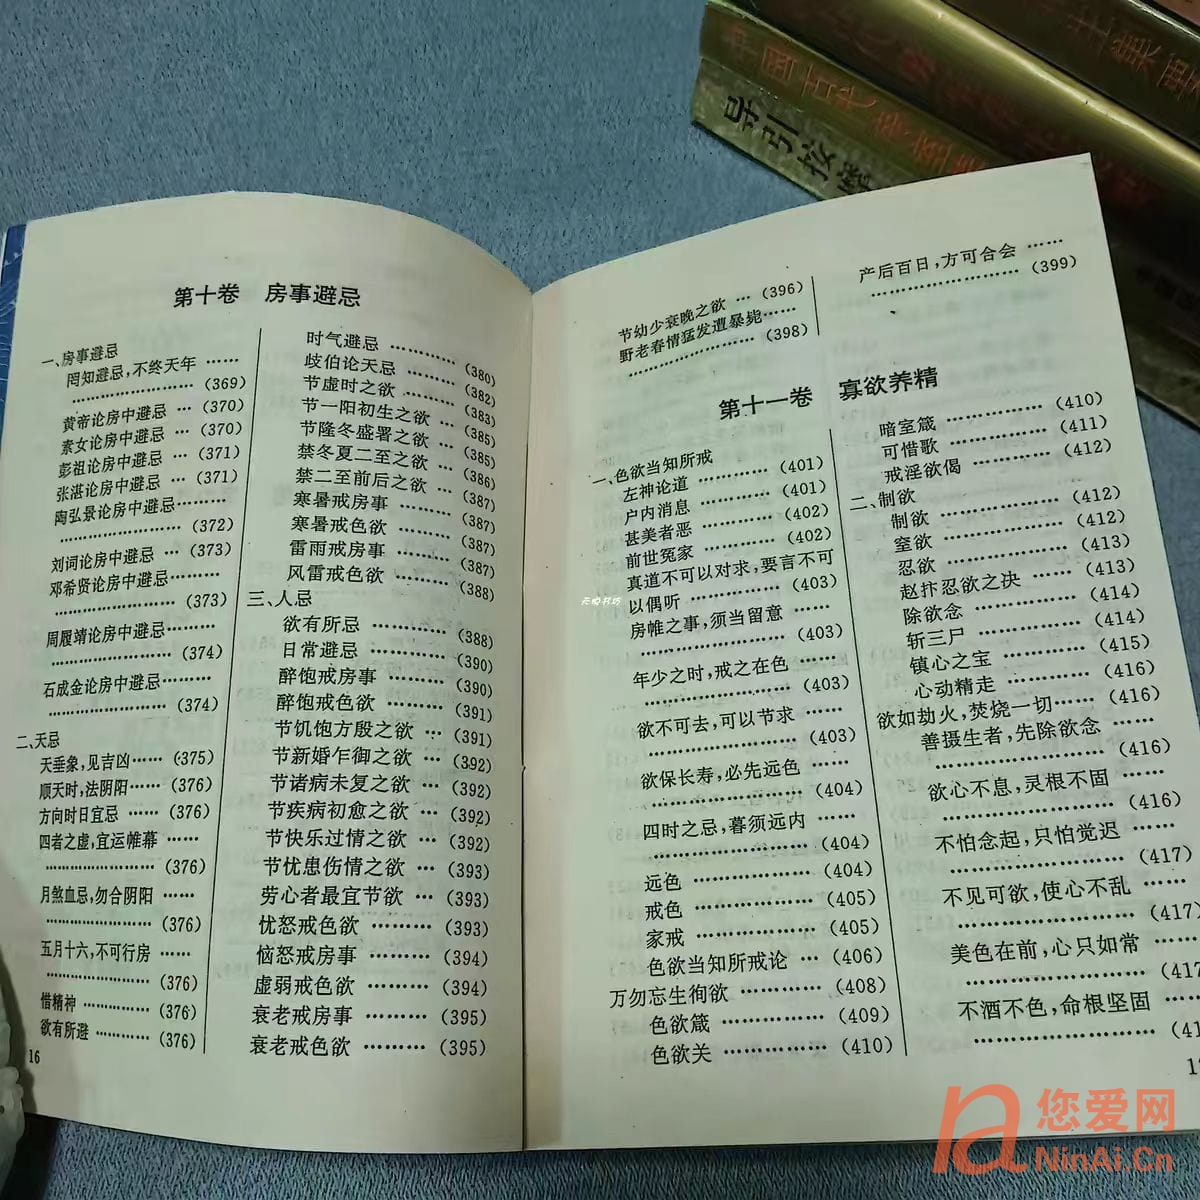 第十卷 房事避忌
一、房事避忌
罔知避忌,不终天年 ……
………………… (369)
黄帝论房中避忌 … (370)
素女论房中避忌 … (370)
彭祖论房中避忌 … (371)
张湛论房中避忌 … (371)
陶弘景论房中避忌………
………………… (372)
刘词论房中避忌 … (373)
邓希贤论房中避忌………
………………… (373)
周履靖论房中避忌………
………………… (374)
石成金论房中避忌………
………………… (374)
二、天忌
天垂象,见吉凶…… (375)
顺天时,法阴阳…… (376)
方向时日宜忌 …… (376)
四者之虚,宜运帷幕 ……
………………… (376)
月煞血忌,勿合阴阳 ……
………………… (376)
五月十六,不可行房 ……
………………… (376)
惜精神 ………… (376)
欲有所避 ………… (376)
16
时气避忌 ………… (380)
歧伯论天忌 ……… (382)
节虚时之欲 ……… (383)
节一阳初生之欲 … (385)
节隆冬盛署之欲 … (385)
禁冬夏二至之欲 … (386)
禁二至前后之欲 … (387)
寒暑戒房事 ……… (387)
寒暑戒色欲 ……… (387)
雷雨戒房事 ……… (387)
风雷戒色欲 ……… (388)
三、人忌
欲有所忌 ………… (388)
日常避忌 ………… (390)
醉饱戒房事 ……… (390)
醉饱戒色欲 ……… (391)
节饥饱方殷之欲 … (391)
节新婚乍御之欲 … (392)
节诸病未复之欲 … (392)
节疾病初愈之欲 … (392)
节快乐过情之欲 … (392)
节忧患伤情之欲 … (393)
劳心者最宜节欲 … (393)
忧怒戒色欲 ……… (393)
恼怒戒房事 ……… (394)
虚弱戒色欲 ……… (394)
衰老戒房事 ……… (395)
衰老戒色欲 ……… (395)
节幼少衰晚之欲 … (396)
野老春情猛发遭暴毙……
………………… (398)
产后百日,方可合会 ……
………………… (399)
第十一卷 寡欲养精
一、色欲当知所戒
左神论道 ………… (401)
户内消息 ………… (401)
甚美者恶 ………… (402)
前世冤家 ………… (402)
真道不可以对求,要言不可
以偶听 …………… (403)
房帷之事,须当留意 ……
………………… (403)
年少之时,戒之在色 ……
………………… (403)
欲不可去,可以节求 ……
………………… (403)
欲保长寿,必先远色 ……
………………… (404)
四时之忌,暮须远内 ……
………………… (404)
远色 ……………… (404)
戒色 ……………… (405)
家戒 ……………… (405)
色欲当知所戒论 … (406)
万勿忘生徇欲 …… (408)
色欲箴 …………… (409)
色欲关 …………… (410)
暗室箴 …………… (410)
可惜歌 …………… (411)
戒淫欲偈 ………… (412)
二、制欲
制欲 ……………… (412)
窒欲 ……………… (412)
忍欲 ……………… (413)
赵抃忍欲之决 …… (413)
除欲念 …………… (414)
斩三尸 …………… (414)
镇心之宝 ………… (415)
心动精走 ………… (416)
欲如劫火,焚烧一切…… (416)
善摄生者,先除欲念 ……
………………… (416)
欲心不息,灵根不固 ……
………………… (416)
不怕念起,只怕觉迟 ……
………………… (417)
不见可欲,使心不乱 ……
………………… (417)
美色在前,心只如常 ……
………………… (417
不酒不色,命根坚固 ……
………………… (41
导引按
中国古代养生
您爱网
NinAi.Cn